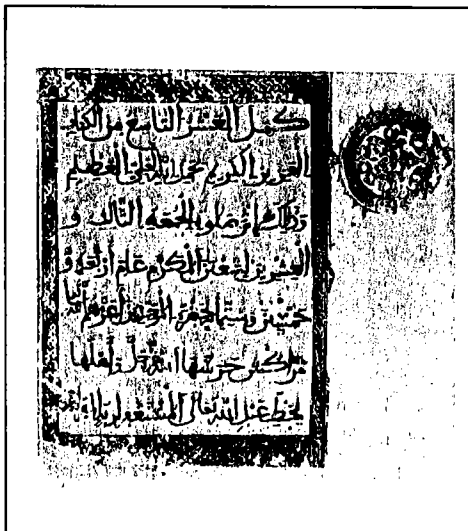 كمل العشر التاسع من الكتاب
العزيز الكريم بحمد الله العلي العظيم
وذلك إثر صلوة الجمعة الثالث و
العشرين لشعبان المكرم عام أربعة و
خمسين وستمائة بحضرة الموحدين أعزهم الله
مراكش حرسها الله وأهلها
بخط عبد الله تعالى المستغفر